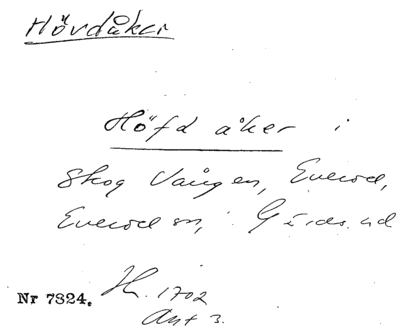 Hövdåker
Höfd åker i
Skog Vången, Everöd,
Everöd sn, Gärds hd
Nr 7324. 1702
Akt 3.